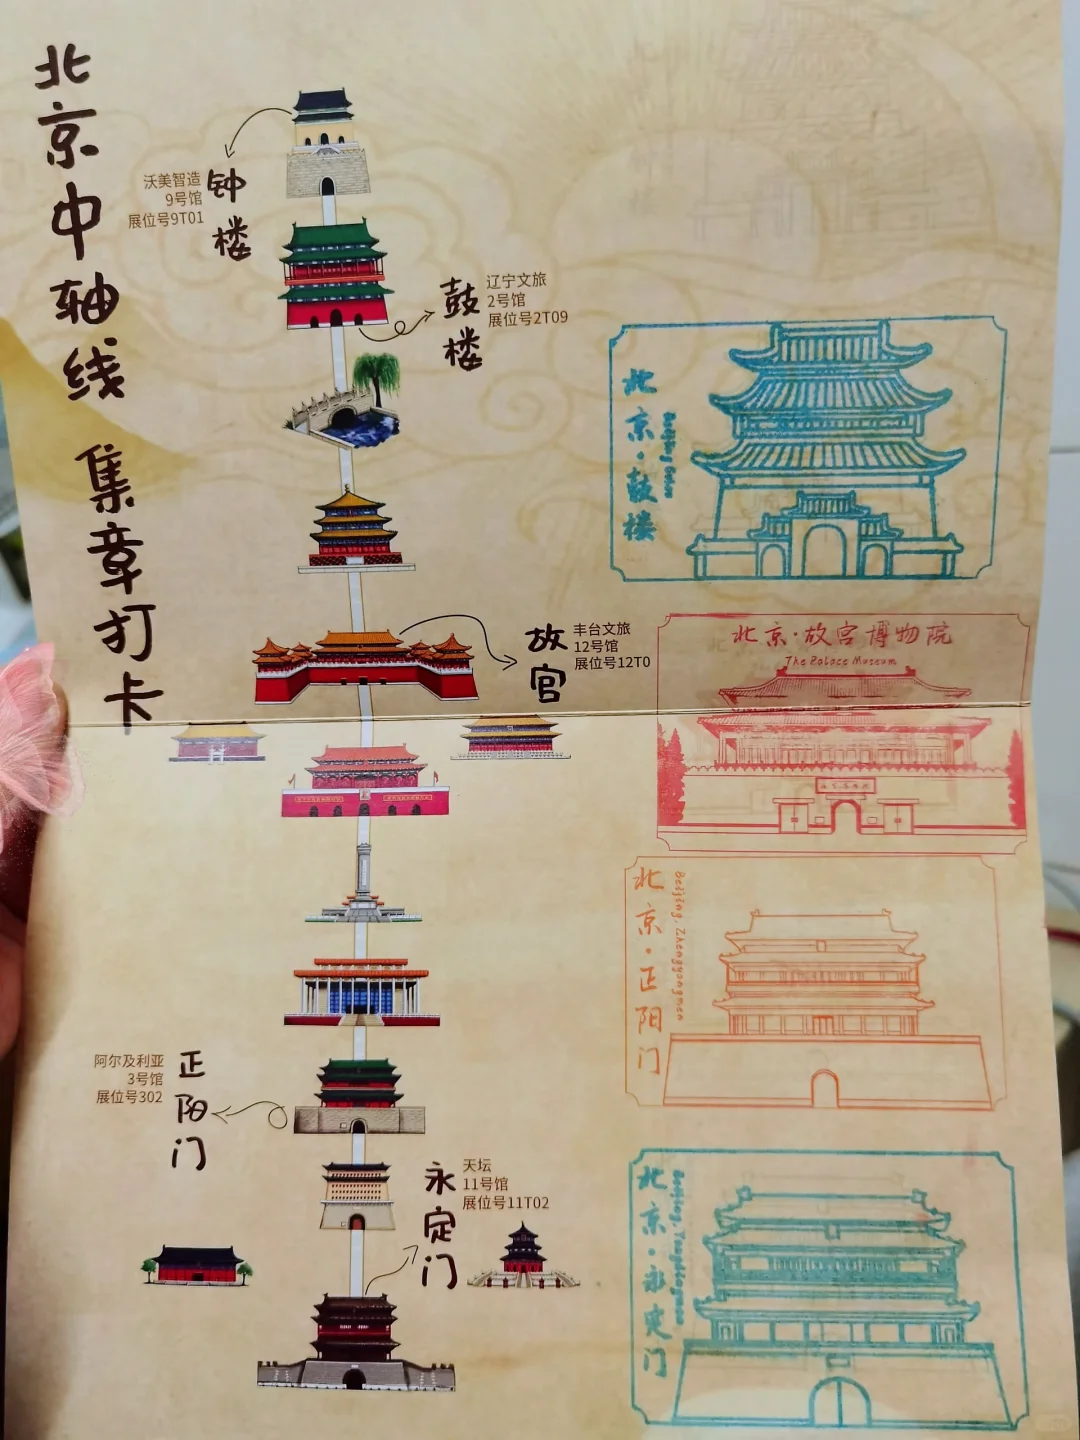 北京中轴线 集章打卡
钟楼
沃美智造
9号馆
展位号9T01
鼓楼
辽宁文旅
2号馆
展位号2T09
北京·鼓楼
故宫
丰台文旅
12号馆
展位号12T0
北京·故宫博物院
The Palace Museum
正阳门
阿尔及利亚
3号馆
展位号302
北京·正阳门
Beijing, Zhengyangmen
永定门
天坛
11号馆
展位号11T02
北京·永定门
Beijing, Yongdingmen